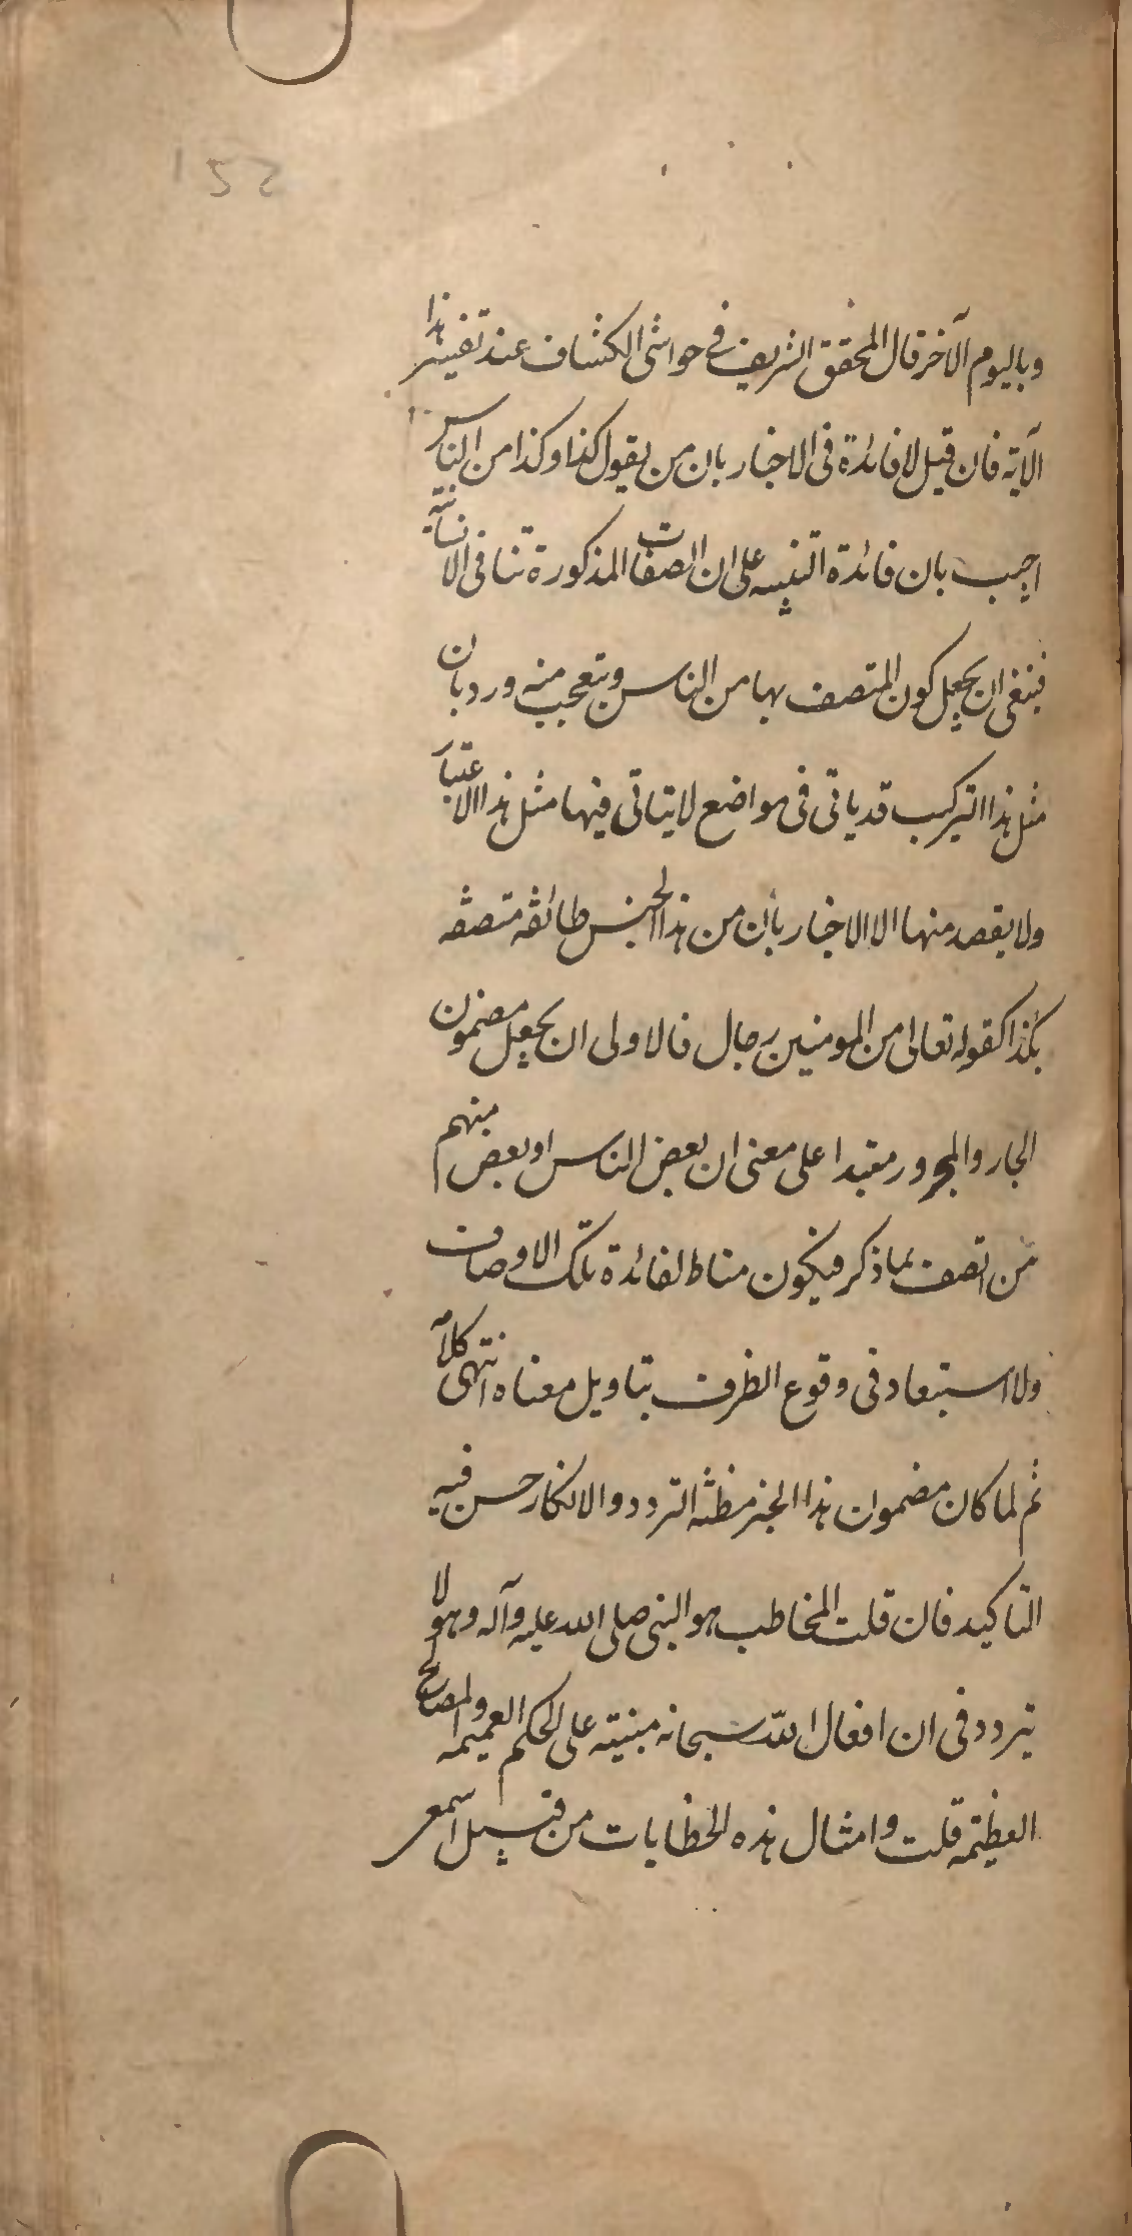 152
وباليوم الآخر قال المحقق الشريف في حواشي الكشاف عند تفسير هذا
الآية فان قيل لا فائدة في الاخبار بان من يقول كذا وكذا من الناس
اجيب بان فائدة التنبيه على ان الصفات المذكورة تنافي الانسانية
فينبغي ان يجعل كون المتصف بها من الناس ويتعجب منه ورد بان
مثل هذا التركيب قد ياتي في مواضع لا يتاتي فيها مثل هذا الاعتبار
ولا يقصد منها الا الاخبار بان من هذا الجنس طائفة متصفة
بكذا كقوله تعالى من المومنين رجال فالاولى ان يجعل مضمون
الجار والمجرور مبتدا على معنى ان بعض الناس او بعض منهم
من اتصف بما ذكر فيكون مناط الفائدة تلك الاوصاف
ولا استبعاد في وقوع الظرف بتاويل معناه انتهى كلامه
ثم لما كان مضمون هذا الخبر مظنة التردد والانكار حسن فيه
التاكيد فان قلت المخاطب هو النبي صلى الله عليه وآله وهو لا
يتردد في ان افعال الله سبحانه مبنية على الحكم العميمة والمصالح
العظيمة قلت وامثال هذه الخطابات من قبيل اسمعي